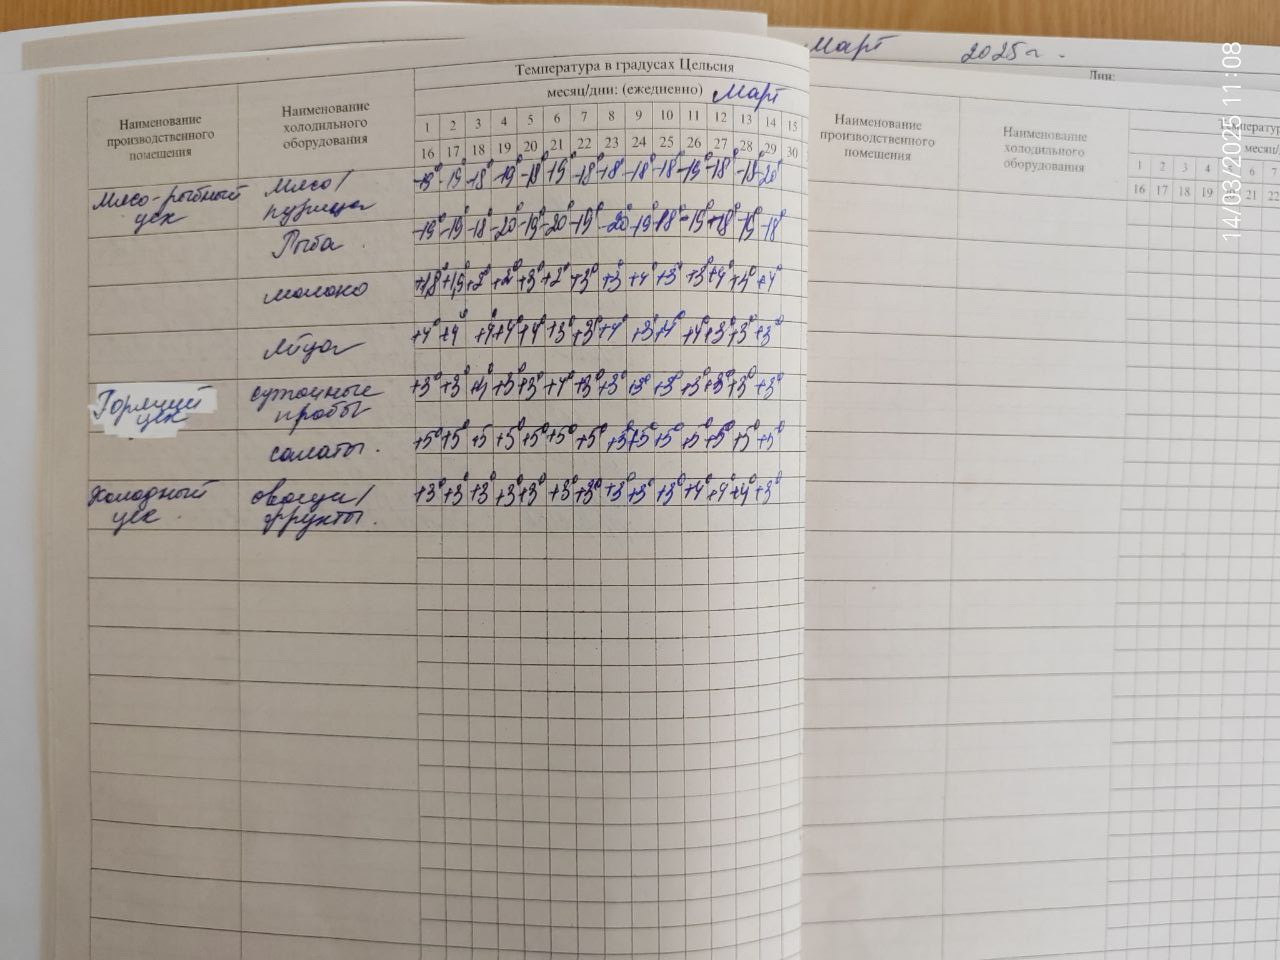 Март 2025 г.
Дни:
Температура в градусах Цельсия
месяц/дни: (ежедневно) Март
Наименование
производственного
помещения
Наименование
холодильного
оборудования
1 2 3 4 5 6 7 8 9 10 11 12 13 14 15
16 17 18 19 20 21 22 23 24 25 26 27 28 29 30
Мясо-рыбный
цех
Мясо/
птица
-19° -19 -18° -19° -18° -19° -18° -18° -18° -18° -19° -18° -18° -20°
Рыба
-19° -19° -18 -20° -19° -20° -19° -20° -19° -18° -19° -18° -19° -18°
молоко
+2° +2° +3° +2° +3° +3 +4° +3° +3° +4° +4°
Яйца
+4° +4° +4 +4° +4° +3° +3° +4° +3° +4° +4° +3° +3° +3°
Горячий
цех
суточные
пробы
+3° +3° +4 +3° +3° +4° +3° +3° +3° +3° +3° +3° +3° +3°
салаты.
+5° +5° +5 +5° +5° +5° +5° +5° +5° +5° +5° +5° +5° +5°
Холодный
цех.
овощи/
фрукты.
+3° +3° +3° +3° +3° +3° +3° +3° +3° +3° +4° +4° +4° +3°
Наименование
производственного
помещения
Наименование
холодильного
оборудования
месяц/
1 2 3 4 6 7
16 17 18 19 21 22
14/03/2025 11:08